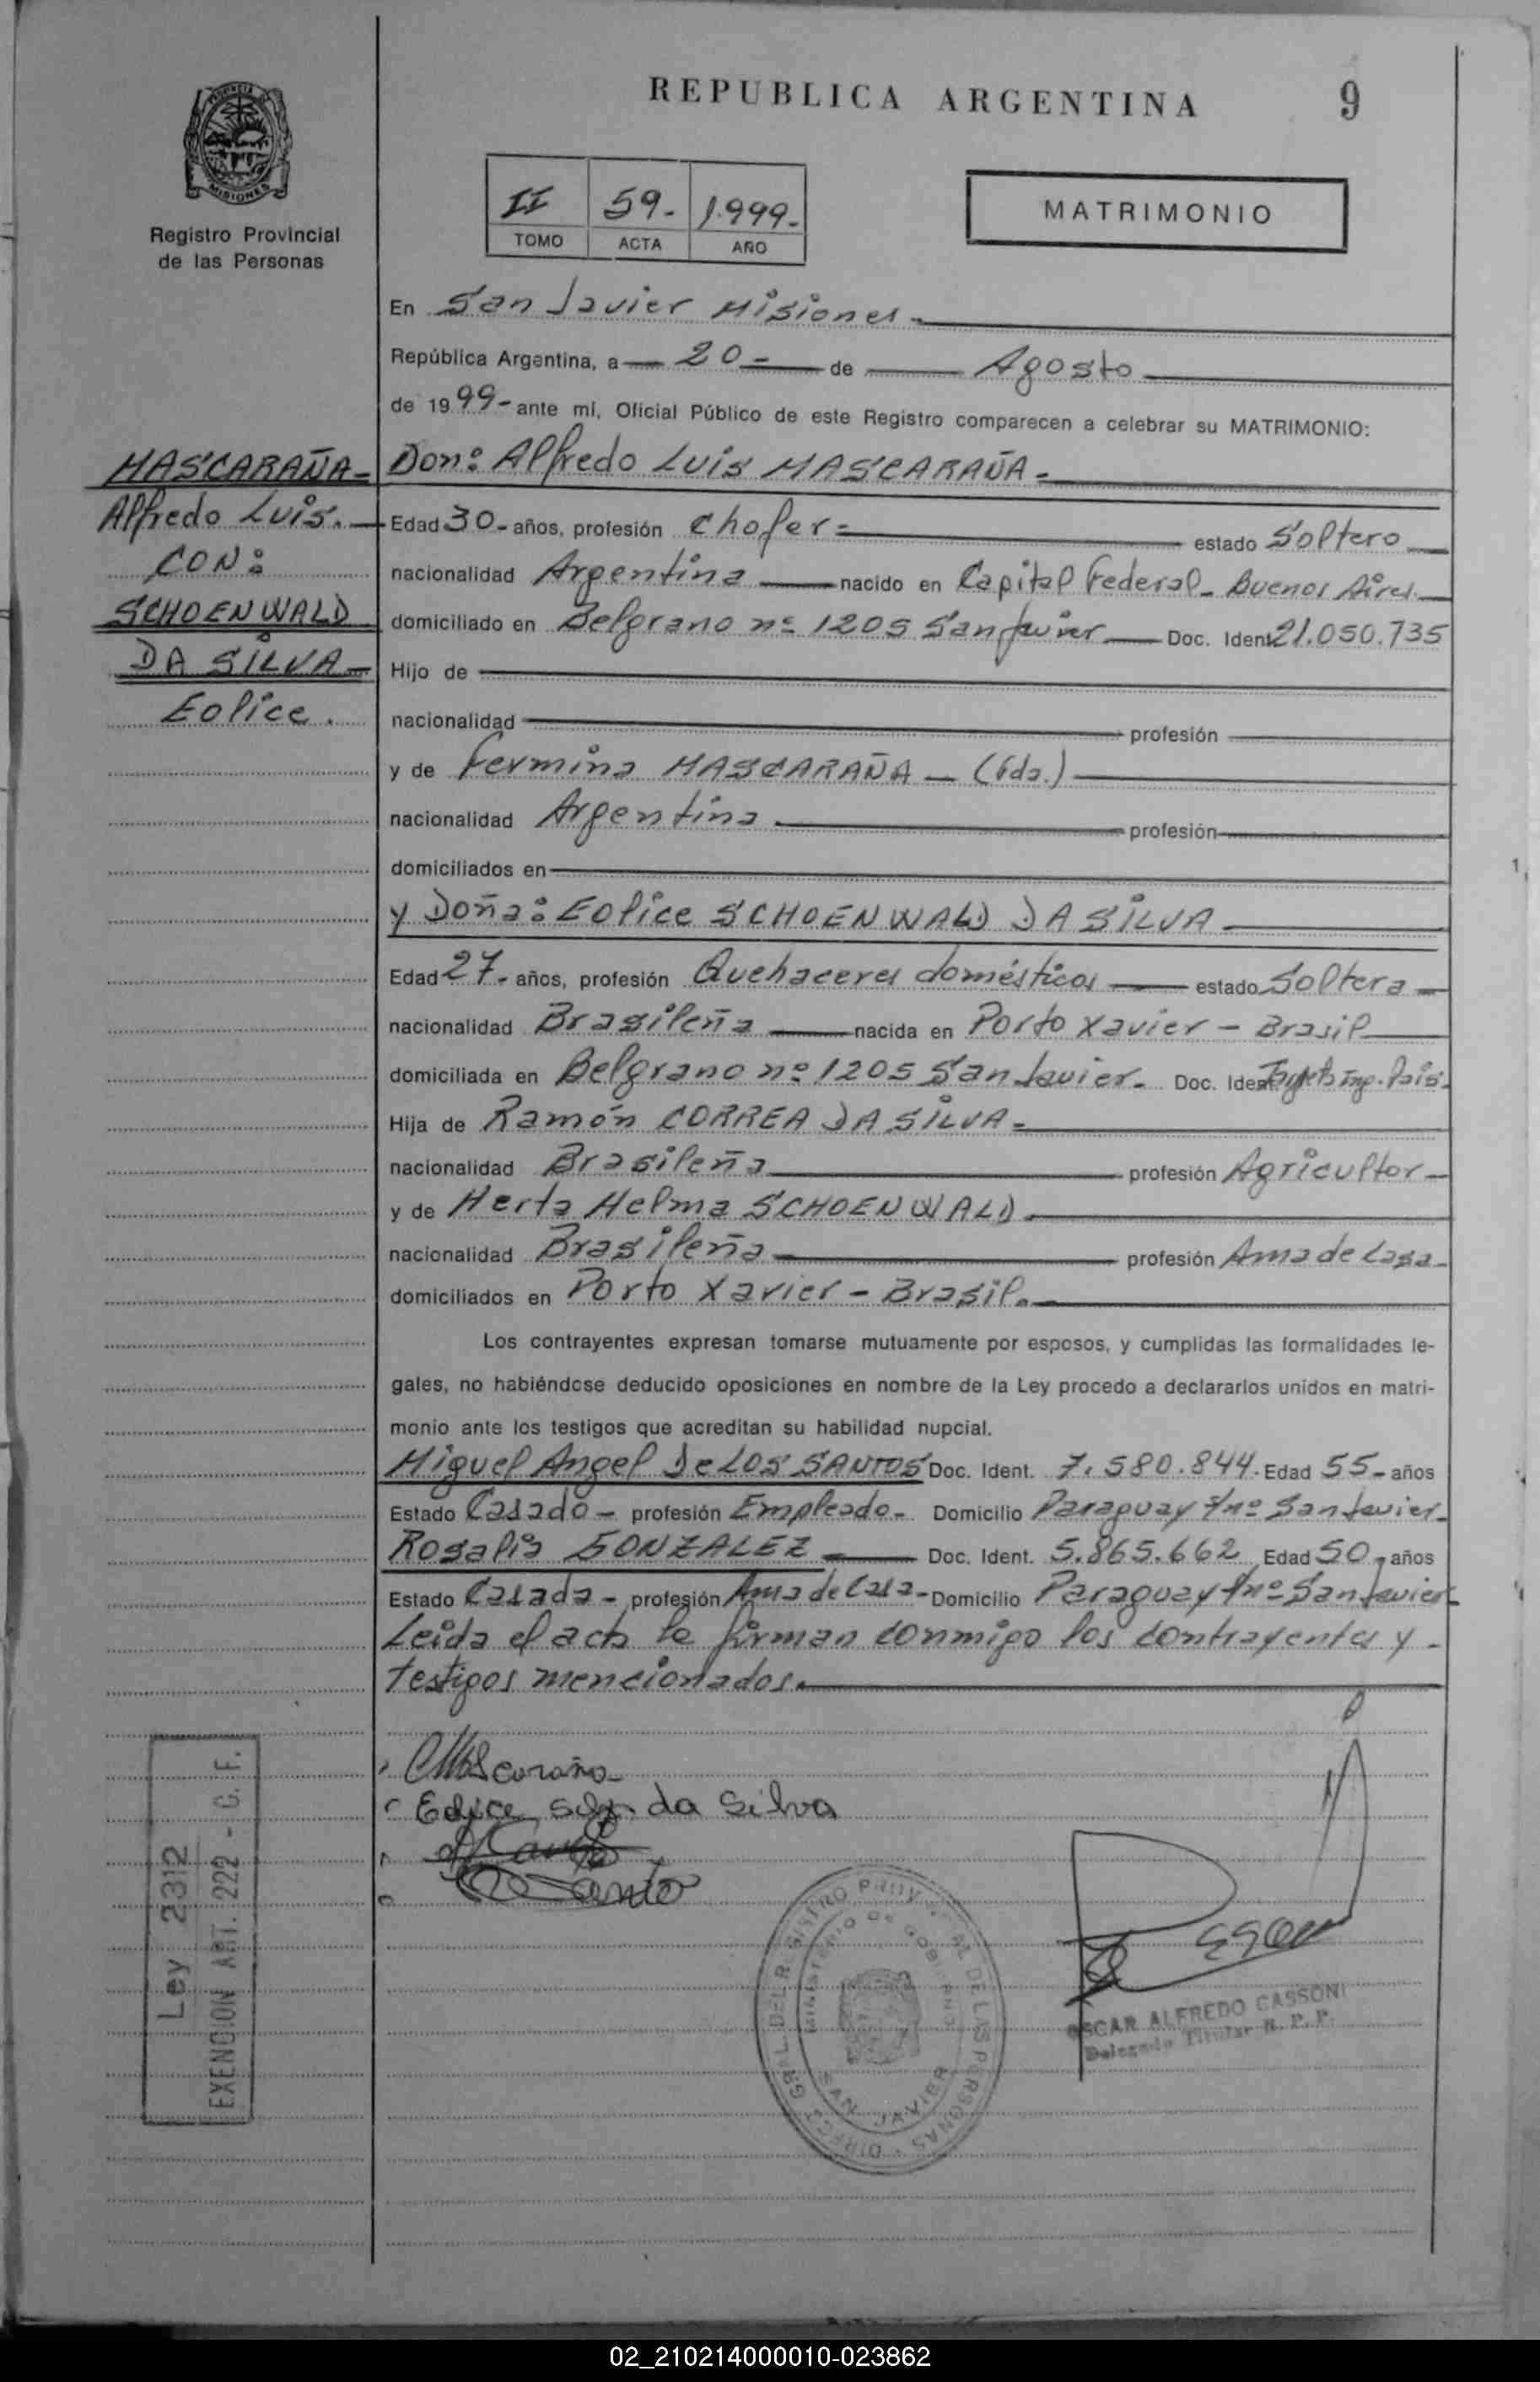 REPUBLICA ARGENTINA
9
MISIONES
Registro Provincial
de las Personas
II 59.- 1.999.-
TOMO ACTA AÑO
MATRIMONIO
En San Javier Misiones.-
República Argentina, a 20.- de Agosto
de 1999- ante mí, Oficial Público de este Registro comparecen a celebrar su MATRIMONIO:
MASCARAÑA-
Alfredo Luis.
CON:
SCHOENWALD
DA SILVA-
Eolice.
Don: Alfredo Luis MASCARAÑA.-
Edad 30- años, profesión Chofer.- estado Soltero
nacionalidad Argentina nacido en Capital Federal- Buenos Aires.
domiciliado en Belgrano nº 1205 San Javier Doc. Ident. 21.050.735
Hijo de
nacionalidad profesión
y de Fermina MASCARAÑA - (fda.)
nacionalidad Argentina profesión
domiciliados en
y Doña: Eolice SCHOENWALD DA SILVA
Edad 27- años, profesión Quehaceres domésticos estado Soltera
nacionalidad Brasileña nacida en Porto Xavier - Brasil
domiciliada en Belgrano nº 1205 San Javier. Doc. Ident. Tarjeta Ing. País.
Hija de Ramón CORREA DA SILVA.-
nacionalidad Brasileña profesión Agricultor
y de Herta Helma SCHOENWALD
nacionalidad Brasileña profesión Ama de Casa
domiciliados en Porto Xavier - Brasil.
Los contrayentes expresan tomarse mutuamente por esposos, y cumplidas las formalidades le-
gales, no habiéndose deducido oposiciones en nombre de la Ley procedo a declararlos unidos en matri-
monio ante los testigos que acreditan su habilidad nupcial.
Miguel Angel De LOS SANTOS Doc. Ident. 7.580.844. Edad 55- años
Estado Casado - profesión Empleado.- Domicilio Paraguay s/nº San Javier.
Rosalía GONZALEZ Doc. Ident. 5.865.662 Edad 50- años
Estado Casada - profesión Ama de Casa - Domicilio Paraguay s/nº San Javier
Leída el acta la firman conmigo los contrayentes y
testigos mencionados.
da Silva
Ley 2312
EXENCION ART. 222 - C. F.
DIRECC. GRAL. DEL REGISTRO PROVINCIAL DE LAS PERSONAS
MINISTERIO DE GOBIERNO
SAN JAVIER
OSCAR ALFREDO CASSONI
Delegado Titular R. P. P.
02_210214000010-023862